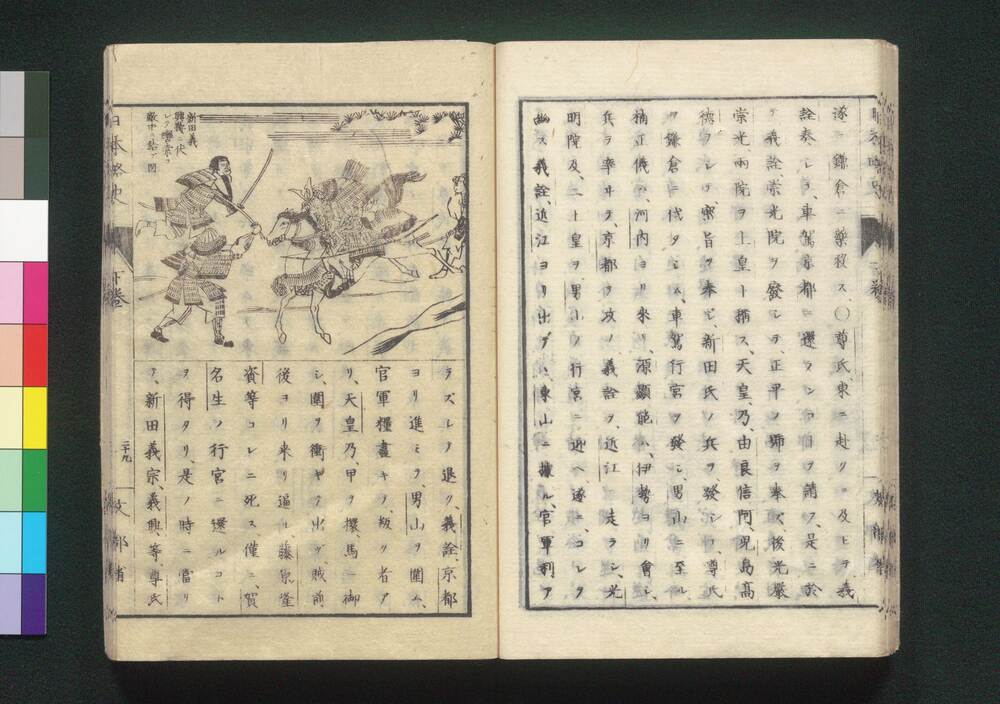 遂ニ鎌倉ニ藥殺ス、〇尊氏東ニ赴クニ及ヒテ義
詮奏シテ、車駕京都ニ還ランコトヲ請フ、是ニ於
テ義詮、崇光院ヲ廢シテ、正平ノ朔ヲ奉ス、後光嚴
崇光、兩院ヲ上皇ト稱ス、天皇、乃、由良信阿、児島高
德ヲシテ、密旨ヲ奉シ、新田氏ノ兵ヲ發シ、尊氏
ヲ鎌倉ニ伐タシム、車駕行宮ヲ發シ、男山ニ至ル、
楠正儀ハ、河内ヨリ來リ、源顯能ハ、伊勢ヨリ會シ、
兵ヲ率ヰテ、京都ヲ攻メ義詮ヲ、近江ニ走ラシ、光
明院及、二上皇ヲ、男山ノ行宮ニ迎ヘ遂ニ、コレヲ
幽ス義詮、近江ヨリ出デヽ、東山ニ據ル、官軍利ア
新田義
興鞾ヲ
敵中ニ
日本略史
下巻
二十九
文部省
ラズシテ退ク、義詮、京都
ヨリ進ミテ、男山ヲ圍ム、
官軍糧盡キ、叛ク者ア
リ、天皇乃、甲ヲ擐、馬ニ御
シ、圍ヲ衝キテ出グ、賊前
後ヨリ来リ逼ル、藤原隆
資等コレニ死ス僅ニ、賀
名生ノ行宮ニ還ルコト
ヲ得タリ、是ノ時ニ當リ
テ、新田義宗、義興、等、尊氏